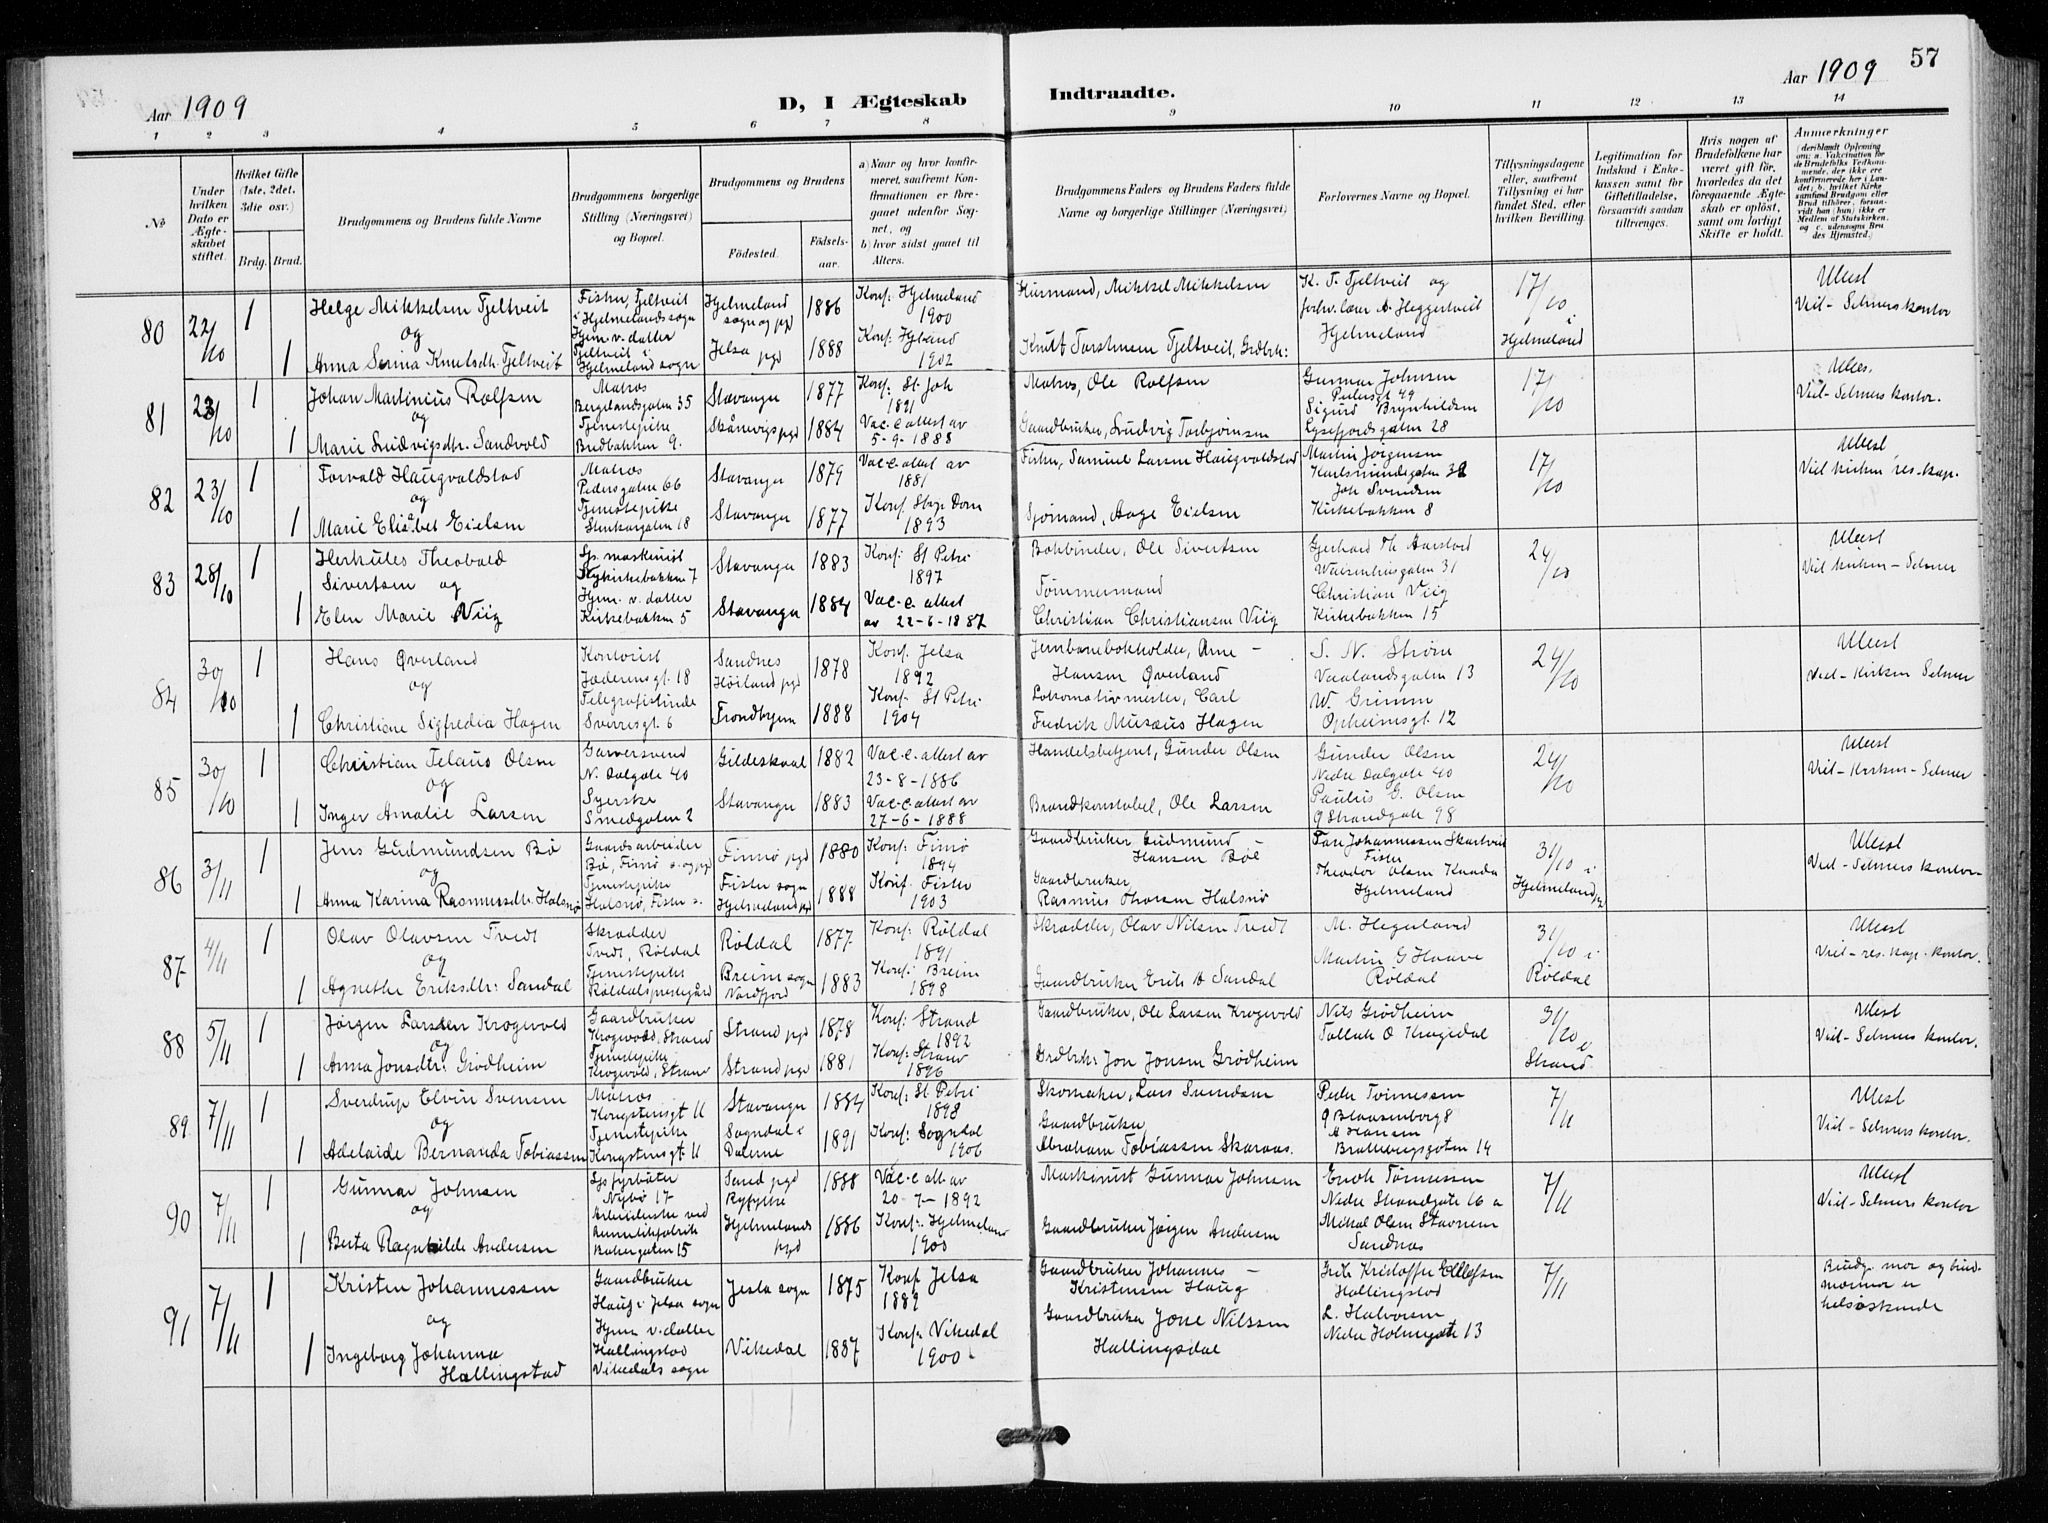 57
Aar 1909
D, I Ægteskab Indtraadte.
Aar 1909
1 2 3 4 5 6 7 8 9 10 11 12 13 14
№
Under hvilken Dato er Ægteskabet stiftet.
Hvilket Gifte (1ste, 2det, 3die osv.)
Brdg. Brud.
Brudgommens og Brudens fulde Navne
Brudgommens borgerlige Stilling (Næringsvei) og Bopæl.
Brudgommens og Brudens
Fødested.
Fødselsaar.
a) Naar og hvor konfirmeret, saafremt Konfirmationen er foregaaet udenfor Sognet, og
b) hvor sidst gaaet til Alters.
Brudgommens Faders og Brudens Faders fulde Navne og borgerlige Stillinger (Næringsvei)
Forlovernes Navne og Bopæl.
Tillysningsdagene eller, saafremt Tillysning ei har fundet Sted, efter hvilken Bevilling.
Legitimation for Indskud i Enkekassen samt for Giftetilladelse, forsaavidt saadan tiltrænges.
Hvis nogen af Brudefolkene har været gift før, hvorledes da det foregaaende Ægteskab er opløst, samt om lovligt Skifte er holdt.
Anmerkninger
(deriblandt Oplysning om: a. Vakcination for de Brudefolks Vedkommende, der ikke ere konfirmerede her i Landet; b. hvilket Kirkesamfund Brudgom eller Brud tilhører, forsaavidt han (hun) ikke er Medlem af Statskirken, og c. udensogns Brudes Hjemsted.
80 22/10 1 Helge Mikkelsen Tjeltveit
Fisker, Tjeltveit i Hjelmelands sogn
Hjelmeland sogn og pgd 1886 Konf: Hjelmeland 1900
Husmand, Mikkel Mikkelsen
K. T. Tjeltveit og
Heggertveit
Hjelmeland
17/10 i Hjelmeland
Viel - Selmers kontor
og
1 Anna Serina Knutsdtr. Tjeltveit
Hjem. v. datter Tjeltveit i Hjelmeland sogn
Jelsa pgd 1888 Konf: 1902
Knut Torstensen Tjeltveit, Grdbrk:
81 23/10 1 Johan Martinius Rolfsen
Matros Bergelandsgaten 35
Stavanger 1877 Konf: St. Joh 1891
Matros, Ole Rolfsen
Gunnar Johnsen
Pedersgt 49
Sigurd Brynhildsen
Lysefjordsgaten 28
17/10
Viel - Selmers kontor.
og
1 Marie Ludvigsdtr. Sandvold
Tjenestepike Bredbakken 9.
Skånevigs pgd 1884 Vac. attest av 5-9-1888
Gaardbruker, Ludvig Torbjørnsen
82 23/10 1 Torvald Haugvaldstad
Matros Pedersgaten 66
Stavanger 1879 Vac.c. attest av 1881
Fisker, Samuel Larsen Haugvaldstad
Martin Jørgensen
Karlsmindegaten 32
Joh Svendsen
Kirkebakken 8
17/10
Viel kirken res. kap.
og
1 Marie Elisabet Eielsen
Tjenestepike Stenkargaten 18
Stavanger 1877 Konf: Dom 1893
Sjømand, Aage Eielsen
83 28/10 1 Herkules Theobald Sivertsen og
maskinist Nykirkebakken 7
Stavanger 1883 Konf: St Petri 1897
Bokbinder, Ole Sivertsen
Gjerhard Th. Aarstad
Waisenhusgaten 31
Christian Viig
Kirkebakken 15
24/10
Viel kirken - Selmer
1 Elen Marie Viig
Hjem. v. datter Kirkebakken 5
Stavanger 1884 Vac.c. attest av 22-6-1887
Tømmermand
Christian Christiansen Viig
84 30/10 1 Hans Øverland
Kontorist Jæderensgt. 18
Sandnes Høiland pgd 1878 Konf. Jelsa 1892
Jernbanebokholder, Arne Hansen Øverland
S. N. Strøm
Vaalandsgaten 13
W. Grimm
Opheimsgt. 12
24/10
Viel - Kirken Selmer
og
1 Christiane Sigfredia Hagen
Telegrafistinde Sverresgt. 6
Trondhjem 1888 Konf: St Petri 1904
Lokomotivmester, Carl Fredrik Musæus Hagen
85 30/10 1 Christian Telaus Olsen
Garversvend N. Dalgate 40
Gildeskaal 1882 Vac.c. attest av 23-8-1886
Handelsbetjent, Gunder Olsen
Gunder Olsen
Nedre Dalgate 40
Paulus G. Olsen
Ø Strandgate 98
24/10
Viel - Kirken - Selmer
og
1 Inger Amalie Larsen
Syerske Smedgaten 2
Stavanger 1883 Vac.c attest av 27-6-1888
Brandkonstabel, Ole Larsen
86 3/11 1 Jens Gudmundsen Bø
Gaardsarbeider Bø, Finnø s. og pgd
Finnø pgd 1880 Konf: Finnø 1894
Gaardbruker Gudmund Hansen Bøe
Tore Johannessen
Fister
Theodor Olsen
Hjelmeland
31/10 i Hjelmeland
Viel - Selmers kontor
og
1 Anna Karina Rasmusdtr. Halsnø
Tjenestepike Halsnø, Fister s.
Fister sogn Hjelmeland pgd 1888 Konf. Fister 1903
Gaardbruker
Rasmus Thorsen Halsnø
87 4/11 1 Olav Olavsen Tvedt
Skrædder Tvedt, Røldal
Røldal 1877 Konf: Røldal 1891
Skrædder, Olav Nilsen Tvedt
M. Hegerland
Martin G Haave
Røldal
31/10 i Røldal
Viel - res. kap. kontor.
og
1 Agnethe Eriksdtr: Sandal
Tjenestepike Røldalsprestegård
Breim sogn Nordfjord 1883 Konf: Breim 1898
Gaardbruker Erik Sandal
88 5/11 1 Jørgen Larsen Krogevold
Gaardbruker Krogevold, Strand
Strand pgd 1878 Konf: Strand 1892
Gaardbruker, Ole Larsen Krogevold
Nils Grødheim
Tollak O Krogedal
31/10 i Strand
Viel - Selmers kontor.
og
1 Anna Jonsdtr. Grødheim
Tjenestepike Krogevold, Strand
Strand pgd 1881 Konf: Strand 1896
Grdbrk: Jon Jonsen Grødheim
89 7/11 1 Sverdrup Elvin Svensen
Matros Kongstensgt 11
Stavanger 1884 Konf: St Petri 1898
Skomaker, Lars Svendsen
Peder Tønnessen
Ø Blaasenborg 8
Hansen
Brattebergsgaten 14
7/11
Viel - Selmers kontor.
og
1 Adelaide Bernanda Tobiassen
Tjenestepike Kongstensgt 11
Sogndal i Dalerne 1891 Konf: Sogndal 1906
Gaardbruker
Abraham Tobiassen Skaraas.
90 7/11 1 Gunnar Johnsen
fyrbøter Nybø 17
Sand pgd Ryfylke 1888 Vac.c att. av 20-7-1892
Maskinist Gunnar Johnsen
Erik Tønnessen
Nedre Strandgate 16 a
Mikal Olsen Stavnem
Sandnes
7/11
Viel - Selmers kontor
og
1 Berta Ragnhilde Andersen
Arbeiderske ved hermetikfabrik Bakergaten 15
Hjelmelands pgd 1886 Konf: Hjelmeland 1900
Gaardbruker Jørgen Andersen
91 7/11 1 Kristen Johannessen
Gaardbruker Haug i Jelsa sogn
Jelsa sogn 1875 Konf Jelsa 1889
Gaardbruker Johannes Kristensen Haug
Kristoffer Ellefsen
Hallingstad
L. Halvorsen
Nedre Holmegate 13
7/11
Brudg. mor og brud. mormor er helsøskende
og
1 Ingeborg Johanna Hallingstad
Hjem v. datter Hallingstad Vikedals sogn
Vikedal 1887 Konf: Vikedal 1900
Gaardbruker Jone Nilssen Hallingsdal